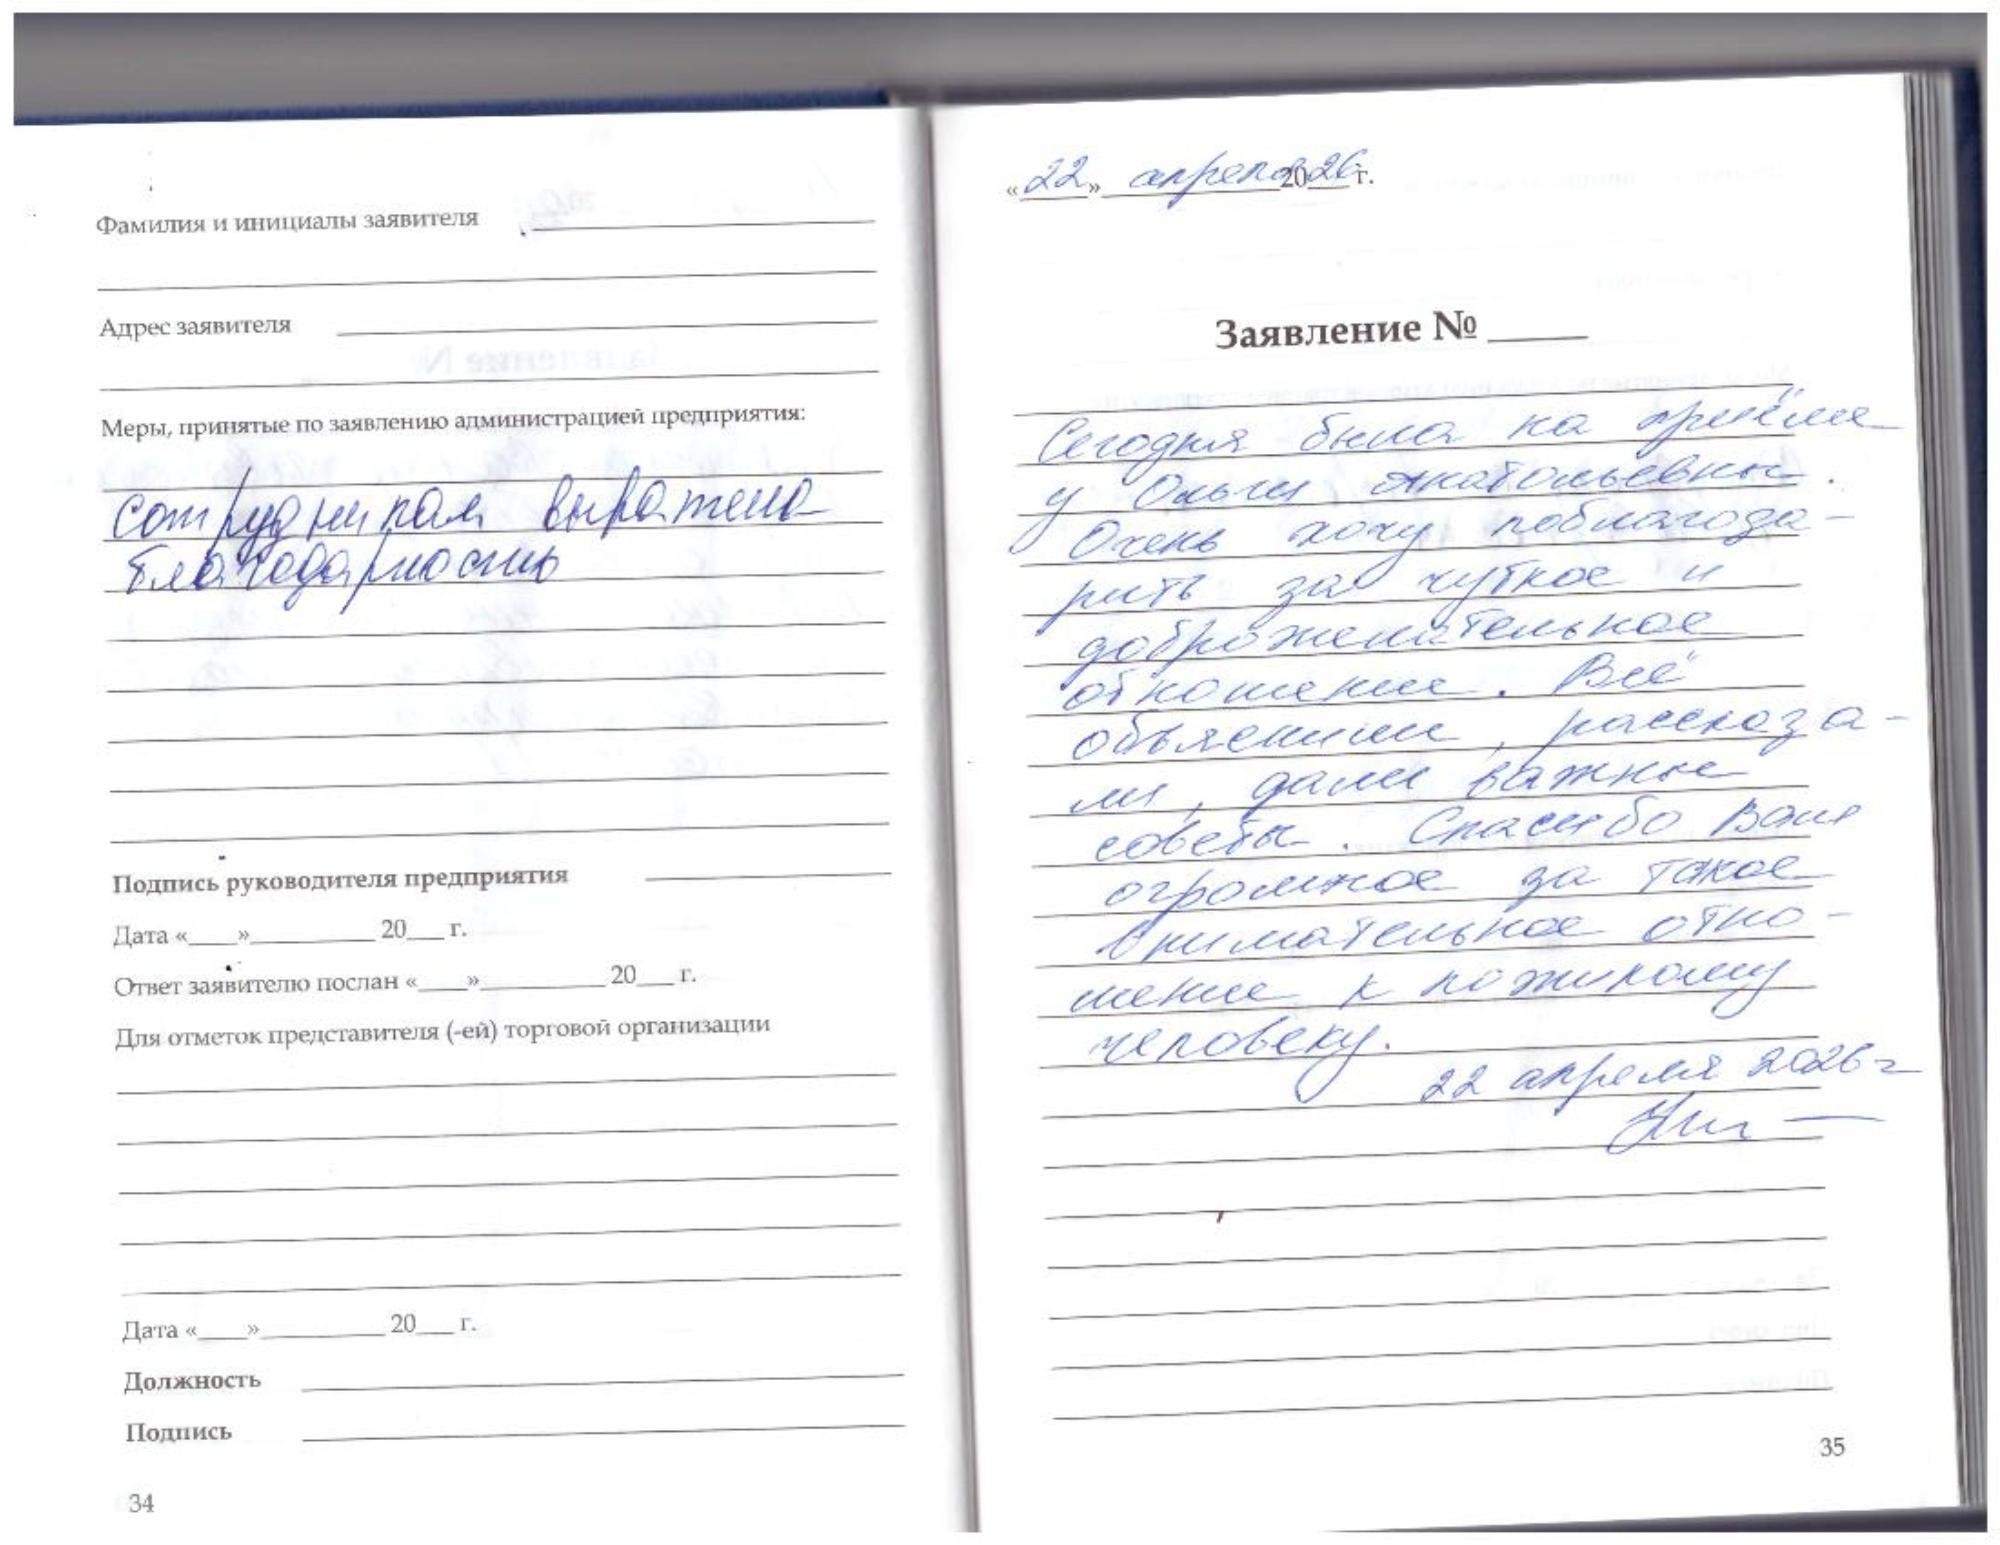 Фамилия и инициалы заявителя
Адрес заявителя
Меры, принятые по заявлению администрацией предприятия:
сотрудникам выражена
благодарность
Подпись руководителя предприятия
Дата «____»__________ 20___ г.
Ответ заявителю послан «____»__________ 20___ г.
Для отметок представителя (-ей) торговой организации
Дата «____»__________ 20___ г.
Должность
Подпись
34
«22» апреля 2026 г.
Заявление № _____
Сегодня была на приёме
у Ольги Анатольевны.
Очень хочу поблагода-
рить за чуткое и
доброжелательное
отношение. Всё
объяснили, рассказа-
ли, дали важные
советы. Спасибо Вам
огромное за такое
внимательное отно-
шение к пожилому
человеку.
22 апреля 2026 г
35